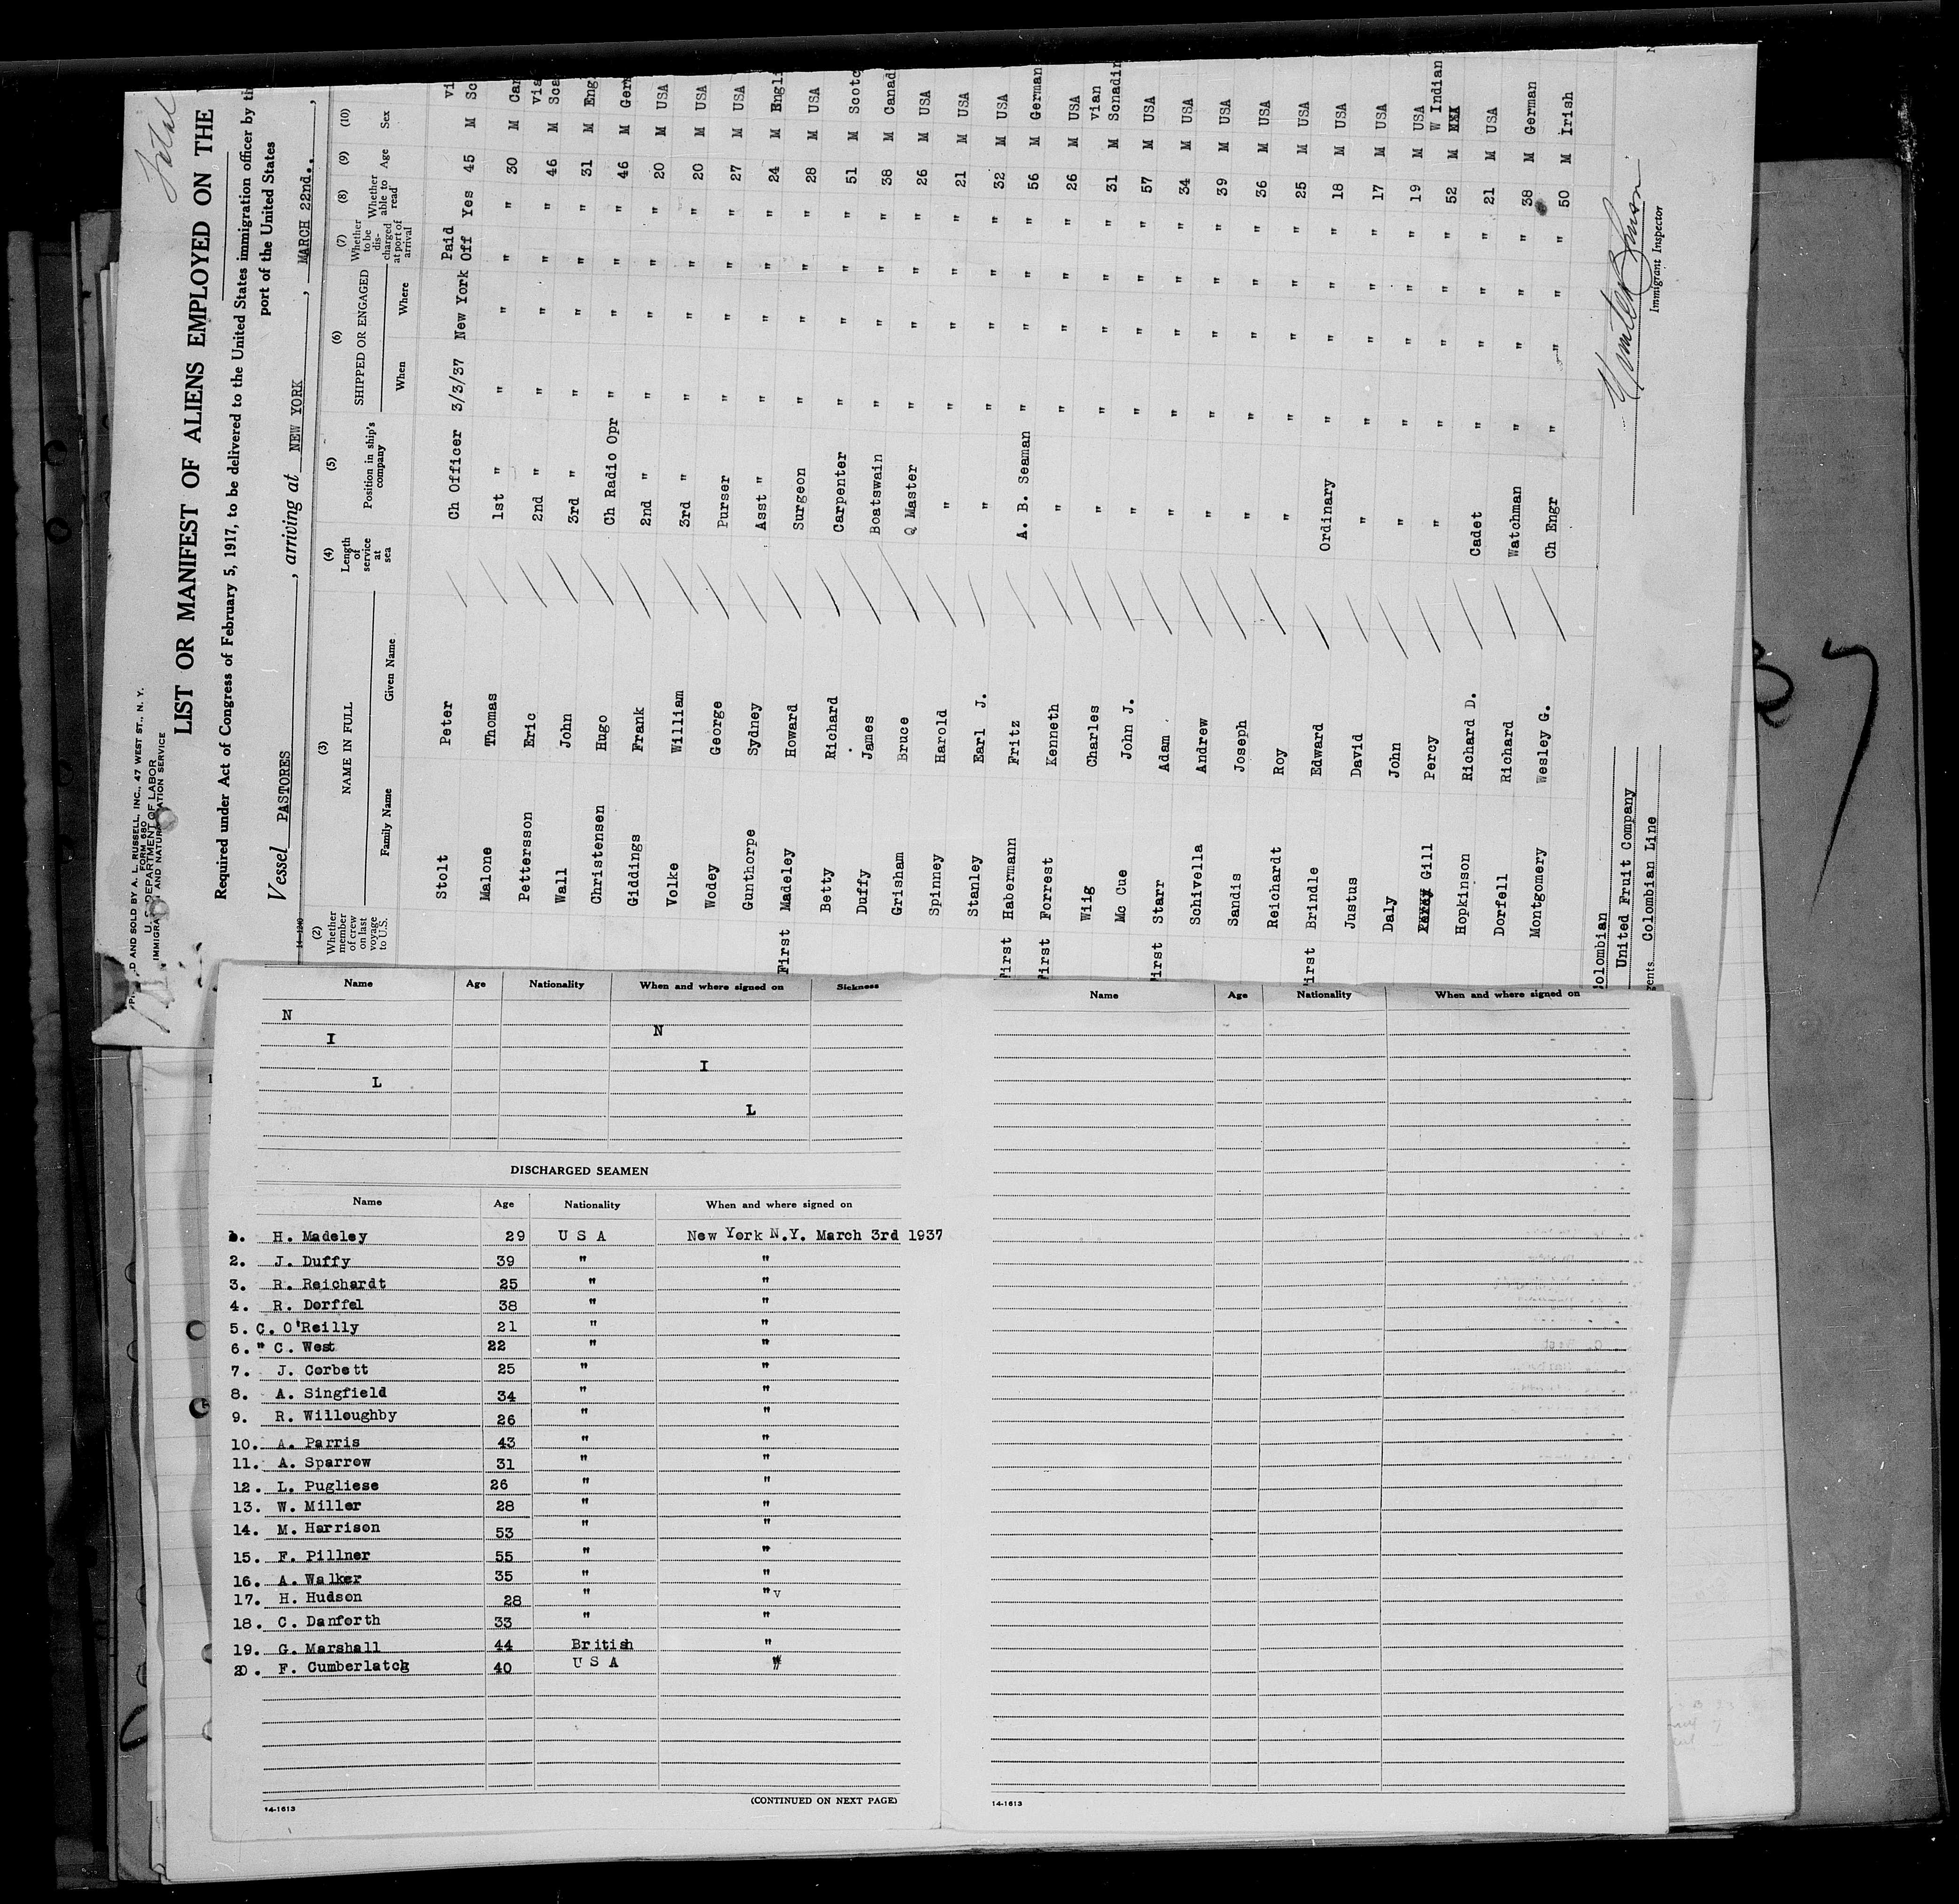 PR D AND SOLD BY A. L. RUSSELL, INC., 47 WEST ST., N. Y.
FORM 680
U. S. DEPARTMENT OF LABOR
IMMIGRATION AND NATURALIZATION SERVICE
LIST OR MANIFEST OF ALIENS EMPLOYED ON THE
Required under Act of Congress of February 5, 1917, to be delivered to the United States immigration officer by th
port of the United States
Vessel PASTORES, arriving at NEW YORK, MARCH 22nd.,
14-1240
(2) Whether member of crew on last voyage to U.S. (3) NAME IN FULL Family Name Given Name (4) Length of service at sea (5) Position in ship's company (6) SHIPPED OR ENGAGED When Where (7) Whether to be discharged at port of arrival (8) Whether able to read (9) Age (10) Sex
Stolt Peter Ch Officer 3/3/37 New York Paid Off Yes 45 M Sc vi
Malone Thomas 1st " " " " " 30 M Can
Pettersson Eric 2nd " " " " " 46 M Sca via
Wall John 3rd " " " " " 31 M Eng
Christensen Hugo Ch Radio Opr " " " " 46 M Germ
Giddings Frank 2nd " " " " " 20 M USA
Volke William 3rd " " " " " 20 M USA
Wodey George Purser " " " " 27 M USA
Gunthorpe Sydney Asst " " " " " 24 M Engli
First Madeley Howard Surgeon " " " " 28 M USA
Betty Richard Carpenter " " " " 51 M Scotc
Duffy James Boatswain " " " " 38 M Canad
Grisham Bruce Q Master " " " " 26 M USA
Spinney Harold " " " " " 21 M USA
Stanley Earl J. " " " " " 32 M USA
First Habermann Fritz A. B. Seaman " " " " 56 M German
First Forrest Kenneth " " " " " 26 M USA
Wiig Charles " " " " " 31 M Scnadin vian
Mc Cue John J. " " " " " 57 M USA
First Starr Adam " " " " " 34 M USA
Schivella Andrew " " " " " 39 M USA
Sandis Joseph " " " " " 36 M USA
Reichardt Roy " " " " " 25 M USA
First Brindle Edward Ordinary " " " " 18 M USA
Justus David " " " " " 17 M USA
Daly John " " " " " 19 M USA
Gill Percy " " " " " 52 M W Indian
Hopkinson Richard D. Cadet " " " " 21 M USA
Dorfell Richard Watchman " " " " 38 M German
Montgomery Wesley G. Ch Engr " " " " 50 M Irish
olombian
United Fruit Company
gents Colombian Line
Immigrant Inspector
37
Name Age Nationality When and where signed on Sickness
N
N
I
I
L
L
DISCHARGED SEAMEN
Name Age Nationality When and where signed on
1. H. Madeley 29 U S A New York N.Y. March 3rd 1937
2. J. Duffy 39 " "
3. R. Reichardt 25 " "
4. R. Dorffel 38 " "
5. C. O'Reilly 21 " "
6. " C. West 22 " "
7. J. Corbett 25 " "
8. A. Singfield 34 " "
9. R. Willoughby 26 " "
10. A. Parris 43 " "
11. A. Sparrow 31 " "
12. L. Pugliese 26 " "
13. W. Miller 28 " "
14. M. Harrison 53 " "
15. F. Pillner 55 " "
16. A. Walker 35 " "
17. H. Hudson 28 " " v
18. C. Danforth 33 " "
19. G. Marshall 44 British "
20. F. Cumberlatch 40 U S A "
14-1613
(CONTINUED ON NEXT PAGE)
Name Age Nationality When and where signed on
14-1613